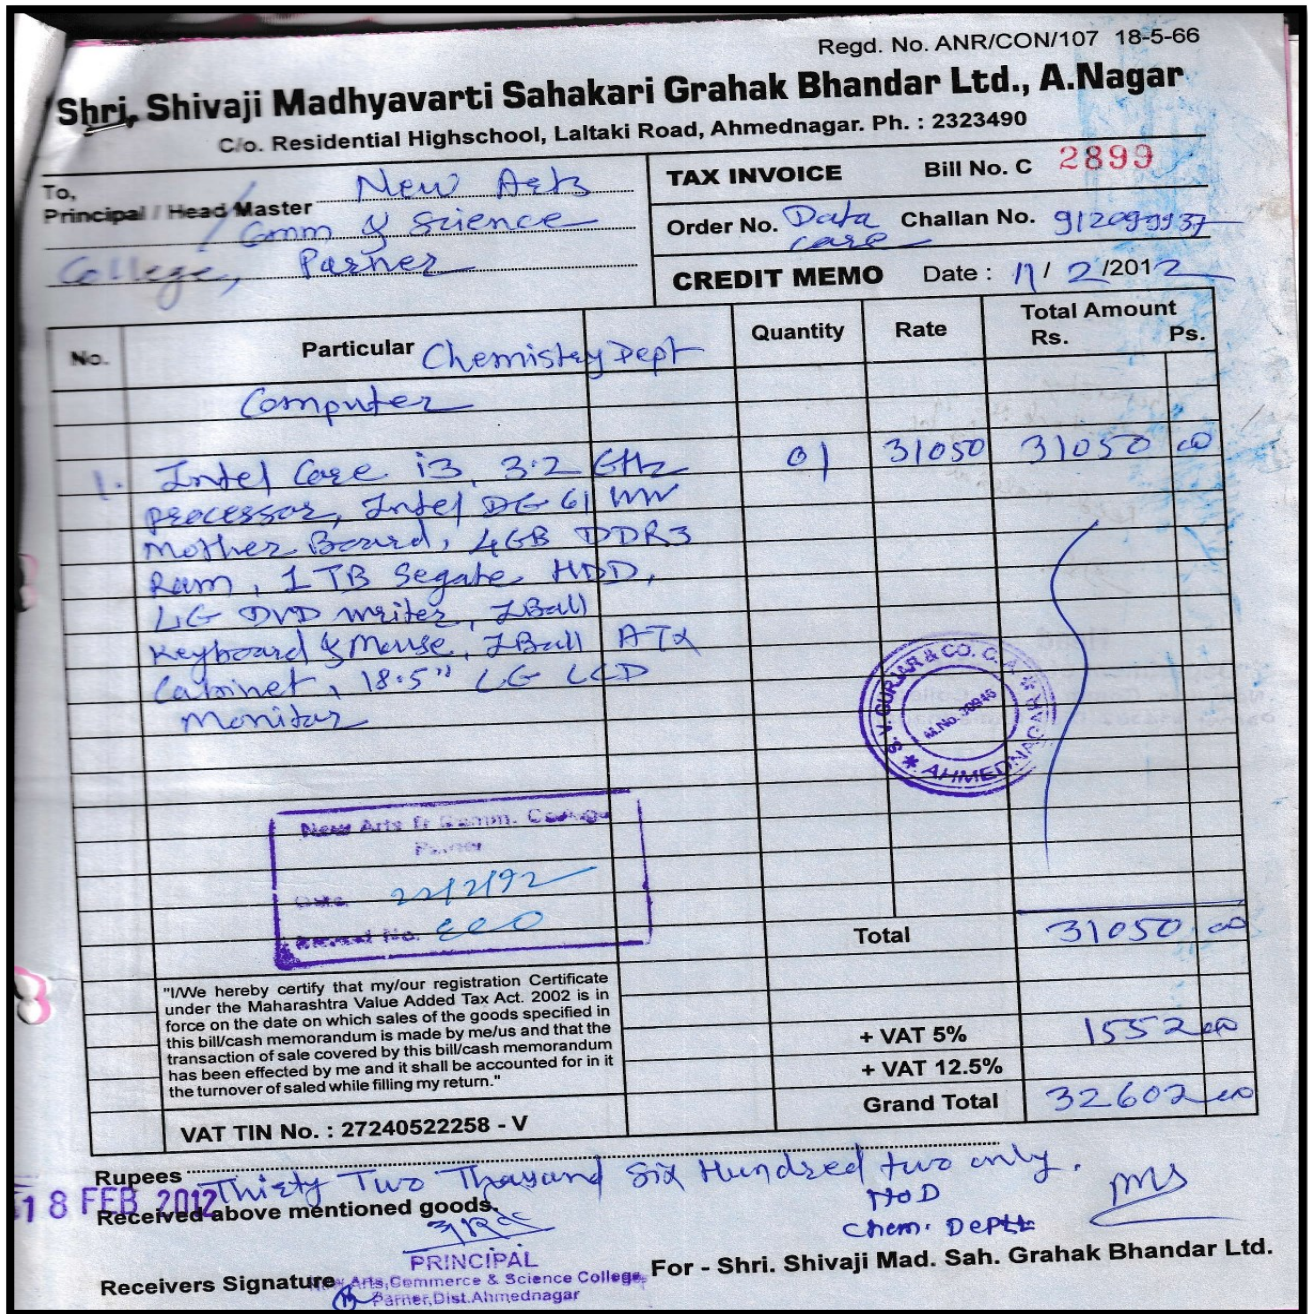 Regd. No. ANR/CON/107 18-5-66
Shri, Shivaji Madhyavarti Sahakari Grahak Bhandar Ltd., A.Nagar
C/o. Residential Highschool, Laltaki Road, Ahmednagar. Ph. : 2323490
To,
Principal / Head Master New Arts
Comm & Science
College, Parner
TAX INVOICE Bill No. C 2899
Order No. Data care Challan No.
CREDIT MEMO Date : 11/2/2012
No. Particular Chemistry Dept Quantity Rate Total Amount
Rs. Ps.
Computer
1. Intel Core i3, 3.2 GHz 01 31050 31050 00
processor, Intel DG 61 WW
Mother Board, 4GB DDR3
Ram, 1TB Segate HDD,
LG DVD writer, IBall
Keyboard & Mouse, IBall ATX
Cabinet, 18.5" LG LCD
Monitor
S. V. GURJAR & CO. C. A. * AHMEDNAGAR *
M.No.
New Arts & Comm. College
Parner
Date
No.
Total 31050 00
"I/We hereby certify that my/our registration Certificate
under the Maharashtra Value Added Tax Act. 2002 is in
force on the date on which sales of the goods specified in
this bill/cash memorandum is made by me/us and that the
transaction of sale covered by this bill/cash memorandum
has been effected by me and it shall be accounted for in it
the turnover of saled while filling my return."
+ VAT 5% 1552 00
+ VAT 12.5%
Grand Total 32602 00
VAT TIN No. : 27240522258 - V
Rupees Thirty Two Thousand Six Hundred two only.
18 FEB 2012
Received above mentioned goods.
HOD
Chem. Deptt
PRINCIPAL
New Arts,Commerce & Science College,
Parner,Dist.Ahmednagar
Receivers Signature
For - Shri. Shivaji Mad. Sah. Grahak Bhandar Ltd.